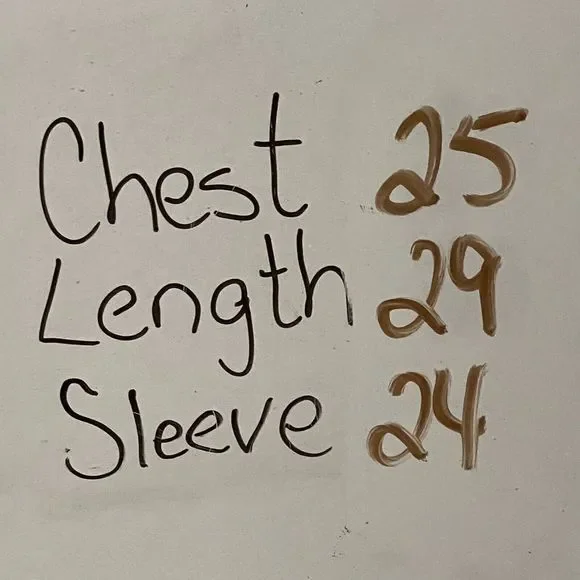 Chest 25
Length 29
Sleeve 24